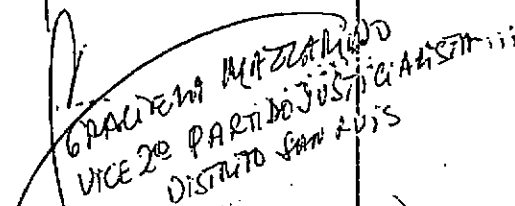 GRACIELA MAZZARINO
VICE 2º PARTIDO JUSTICIALISTA
DISTRITO SAN LUIS